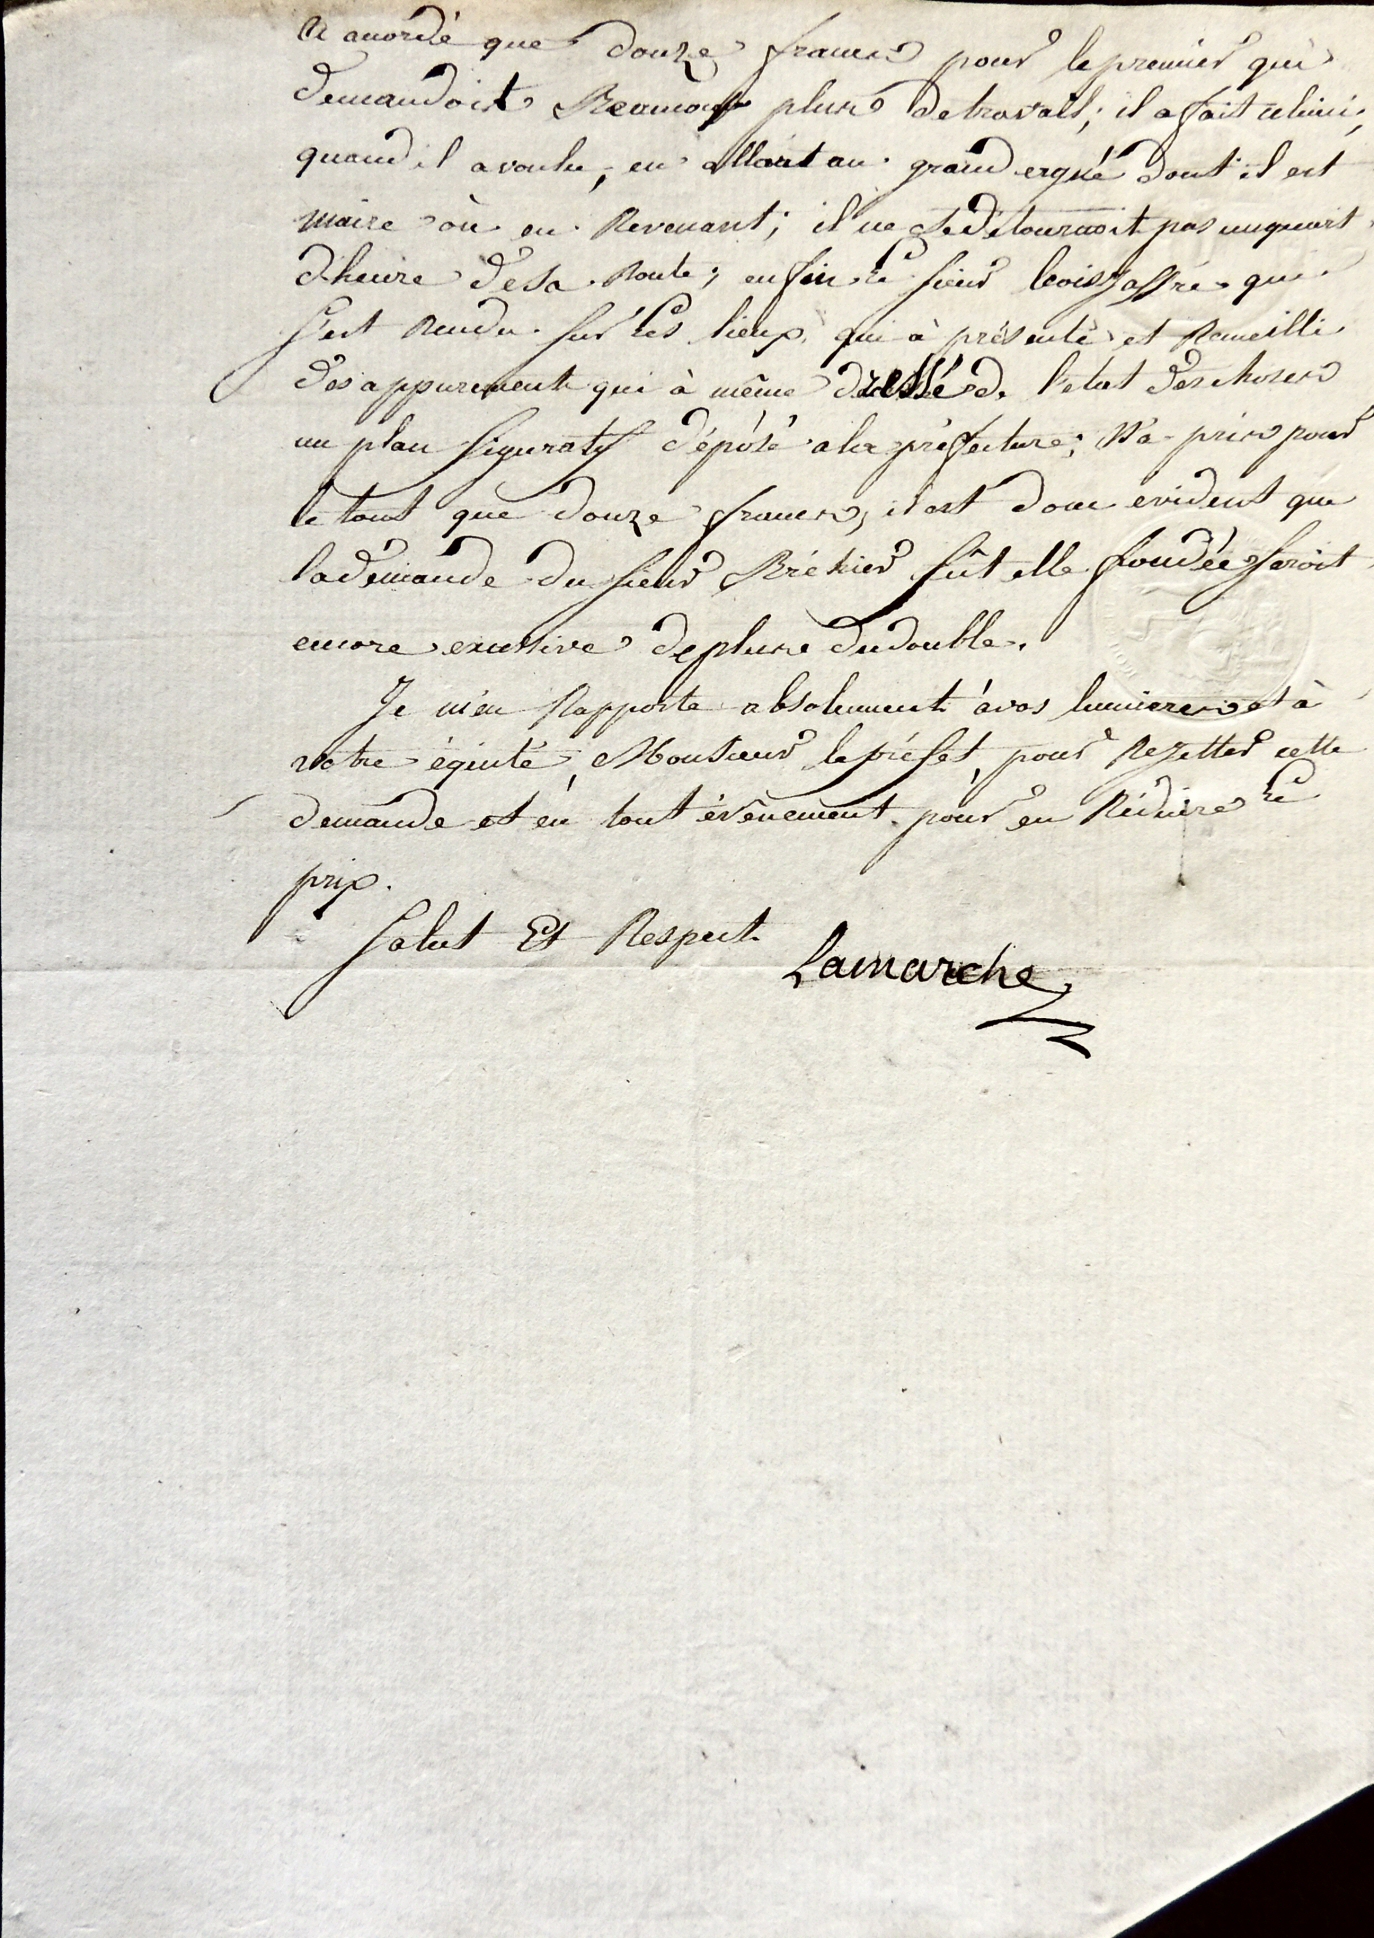 a accordé que douze francs pour le premier qui
demandoit Beaucoup plus de travail; il a fait celui ci,
quand il a voulu, en allant au grand ergué dont il est
maire où en Revenant; il ne se detournoit pas un quart
d'heure de sa Route; enfin le sieur qui
s'est Rendu sur les lieux, qui à présenté et Recueilli
des appurement qui à même dressé de l'etat des choses
un plan figuratif déposé a la préfecture; N'a pris pour
le tout que douze francs, il est donc evident que
la demande du sieur Bréhier fût elle fondée seroit
encore excessive de plus du double.
Je m'en Rapporte absolument à vos lumieres et à
votre équité, Monsieur le préfet, pour Rejetter cette
demande et en tout évênement pour en Réduire le
prix.
Salut Et Respect
Lamarche